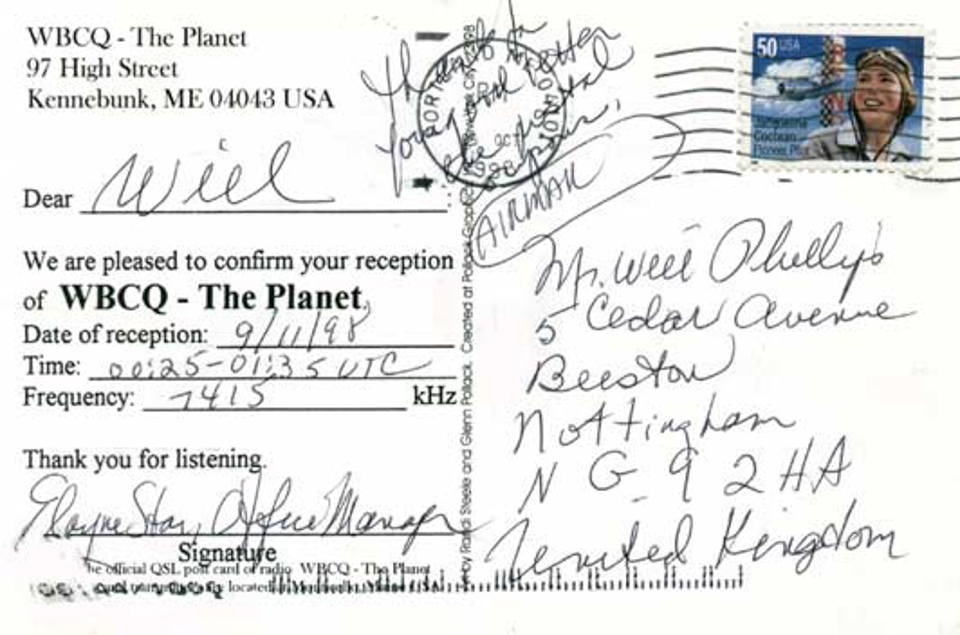 WBCQ - The Planet
97 High Street
Kennebunk, ME 04043 USA
Dear Will :
We are pleased to confirm your reception
of WBCQ - The Planet.
Date of reception: 9/11/98
Time: 00:25-01:35 UTC
Frequency: 7415 kHz
Thank you for listening.
Elayne Star, Office Manager
Signature
The official QSL post card of radio WBCQ - The Planet
located in Monticello, Maine USA
by Randi Steele and Glenn Pollack. Created at Pollack Graphics
Thanks for
your letter
the postal
coupons!
PORTLAND
OCT
1998
AIRMAIL
50 USA
Jacqueline
Cochran
Pioneer Pilot
Mr. Will Phillips
5 Cedar Avenue
Beeston
Nottingham
NG9 2HA
United Kingdom